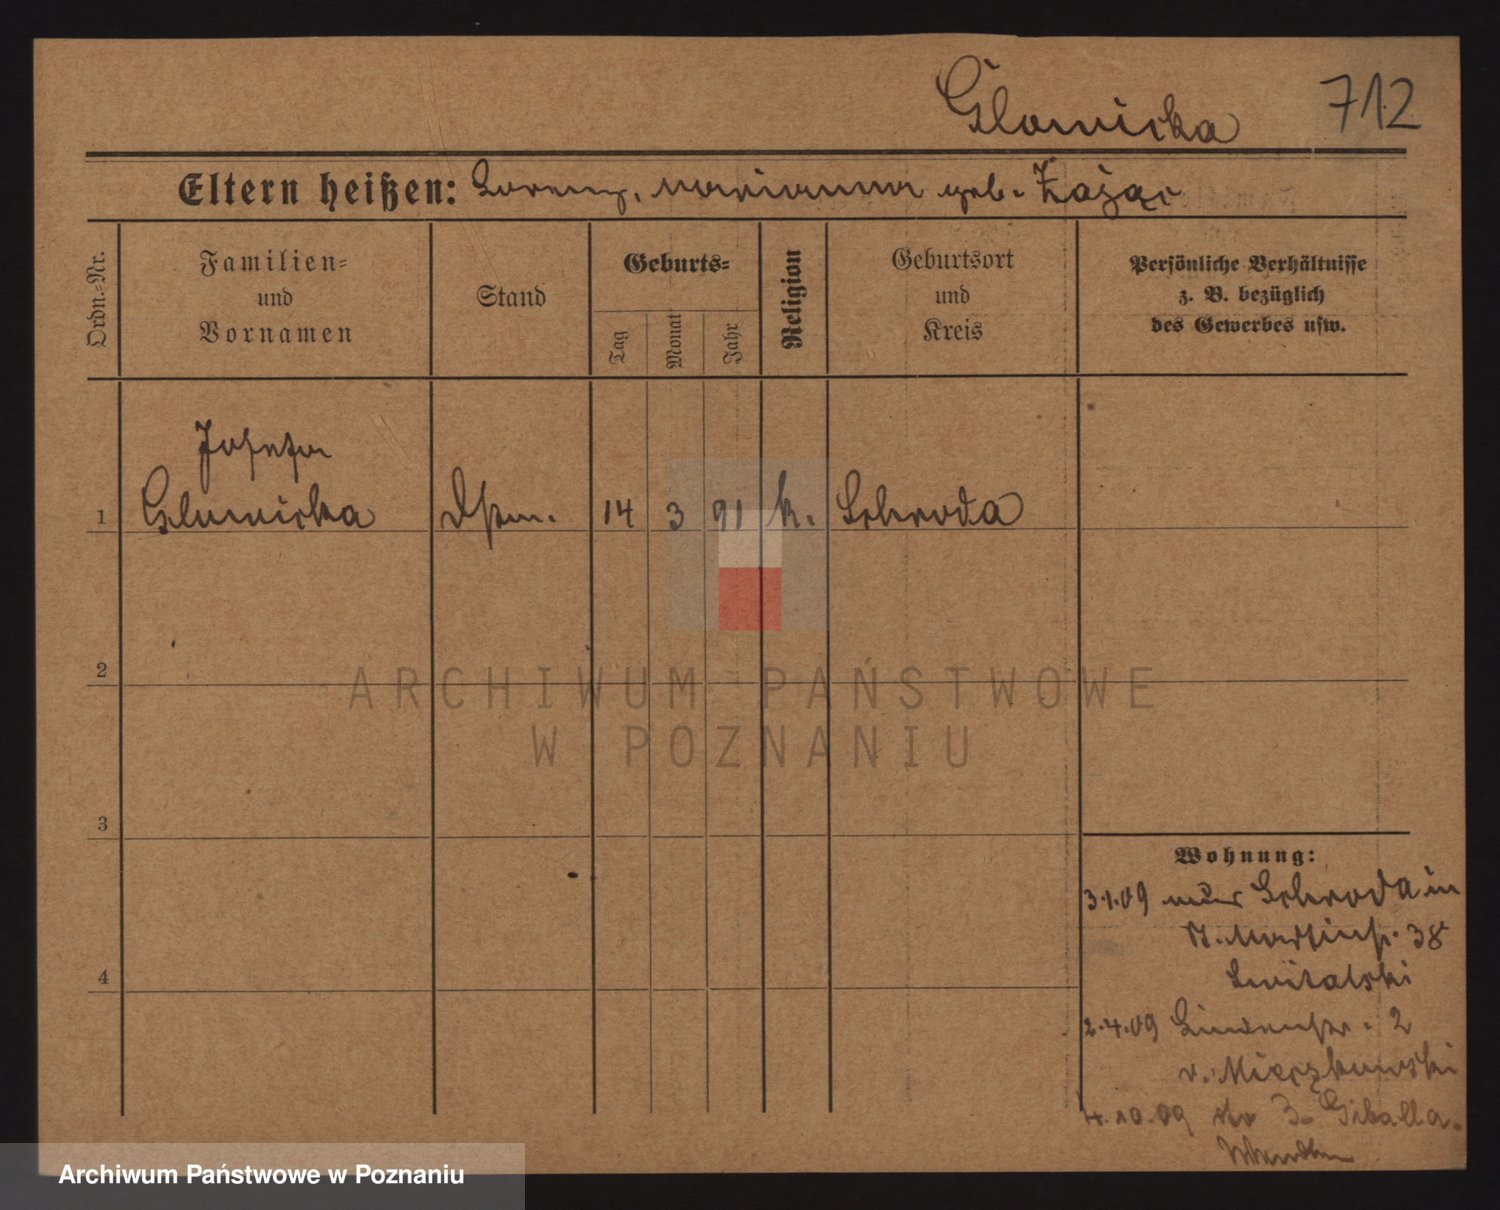 Glowicka 712
Eltern heißen: Lorenz, Marianna geb. Zając
Ordn.-Nr.
Familien-
und
Vornamen
Stand
Geburts-
Tag
Monat
Jahr
Religion
Geburtsort
und
Kreis
Persönliche Verhältnisse
z. B. bezüglich
des Gewerbes usw.
Josefa
1 Glowicka Dstm. 14 3 91 k. Schroda
2
3
4
Wohnung:
3.1.09 aus Schroda in
St. Martinstr. 38
Switalski
2.4.09 Lindenstr. 2
v. Mierzkowski
4.10.09 dto 3 Giballa
ARCHIWUM PAŃSTWOWE
W POZNANIU
Archiwum Państwowe w Poznaniu